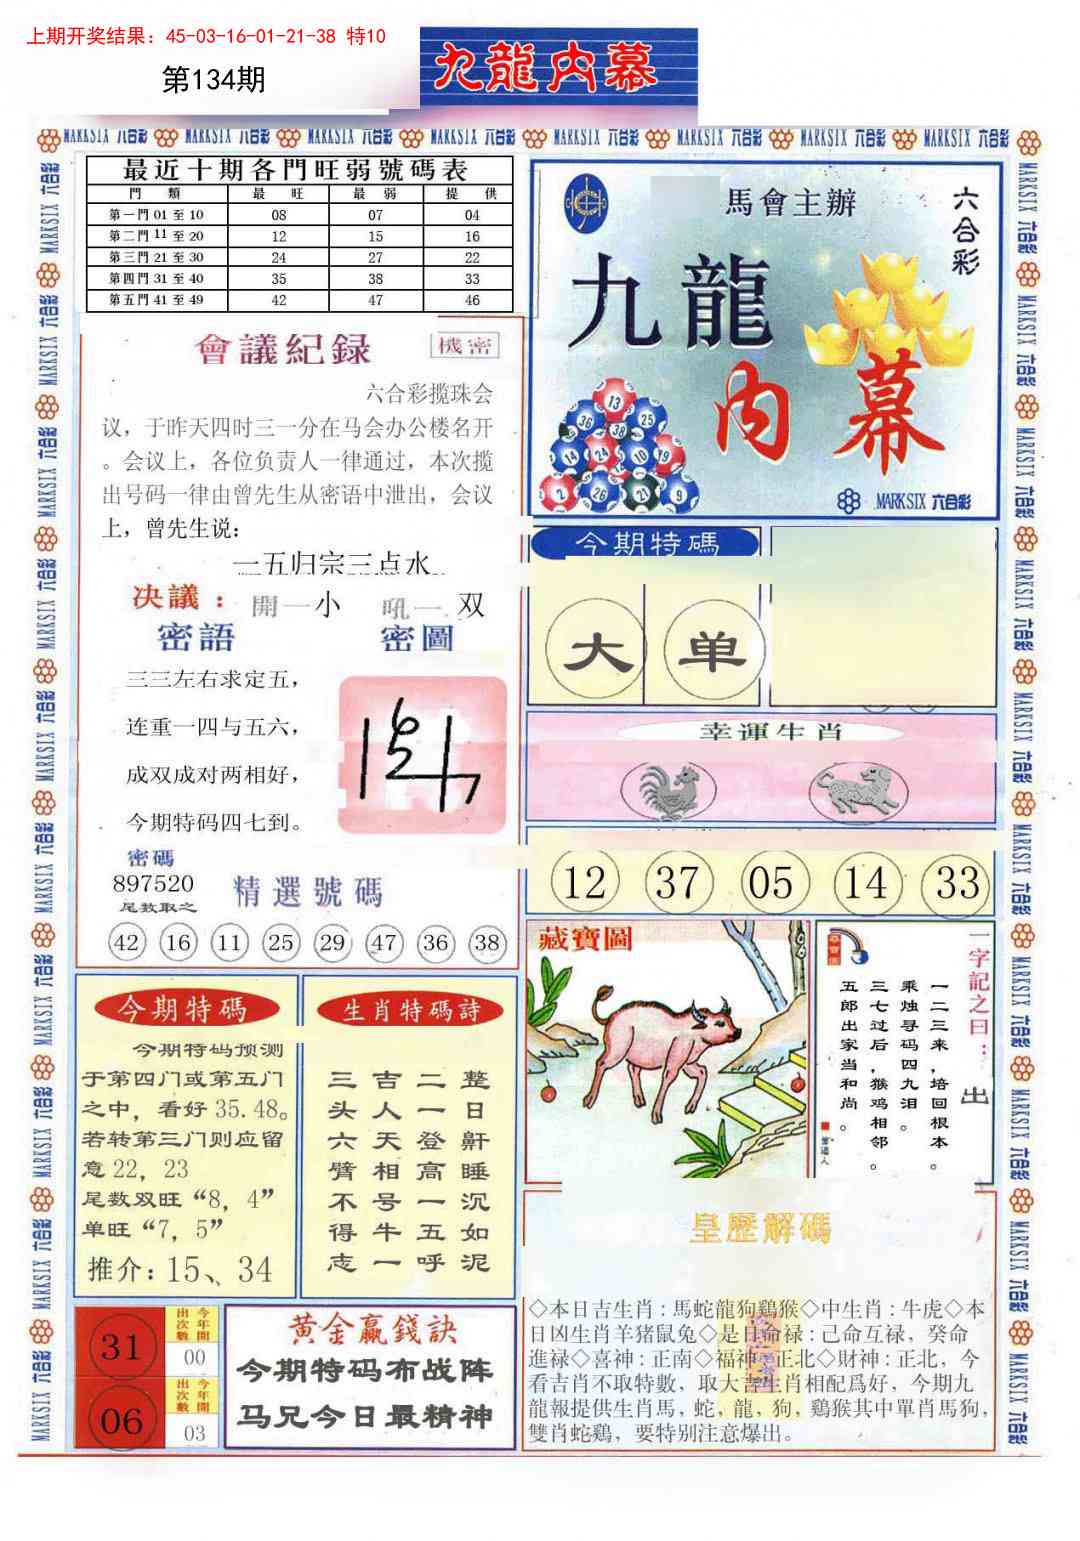 上期开奖结果：45-03-16-01-21-38 特10
第134期
九龍内幕
MARKSIX 六合彩 MARKSIX 六合彩 MARKSIX 六合彩 MARKSIX 六合彩 MARKSIX 六合彩 MARKSIX 六合彩 MARKSIX 六合彩 MARKSIX 六合彩
最近十期各門旺弱號碼表
門類 最旺 最弱 提供
第一門 01 至 10 08 07 04
第二門 11 至 20 12 15 16
第三門 21 至 30 24 27 22
第四門 31 至 40 35 38 33
第五門 41 至 49 42 47 46
馬會主辦
六合彩
九龍
内幕
13
36 25
38
14 24 10 19
2 26 21 9
MARKSIX 六合彩
會議紀録
機密
六合彩搅珠会
议，于昨天四时三一分在马会办公楼名开
。会议上，各位负责人一律通过，本次搅
出号码一律由曾先生从密语中泄出，会议
上，曾先生说：
一五归宗三点水
决議： 開一小 吼一双
密語 密圖
三三左右求定五，
连重一四与五六，
成双成对两相好，
今期特码四七到。
密碼
897520
尾数取之
精選號碼
42 16 11 25 29 47 36 38
今期特碼
大 单
幸運生肖
12 37 05 14 33
今期特碼
今期特码预测
于第四门或第五门
之中，看好 35.48。
若转第三门则应留
意 22，23
尾数双旺“8，4”
单旺“7，5”
推介：15、34
生肖特碼詩
三吉二整
头人一日
六天登鼾
臂相高睡
不号一沉
得牛五如
志一呼泥
藏寶圖
一字記之曰：出
一二三来，培回根本。
乘烛寻码四九泪。
三七过后，猴鸡相邻。
五郎出家当和尚。
皇歷解碼
◇本日吉生肖：馬蛇龍狗鷄猴◇中生肖：牛虎◇本
日凶生肖羊猪鼠兔◇是日命禄：己命互禄，癸命
進禄◇喜神：正南◇福神：正北◇財神：正北，今
看吉肖不取特數，取大吉生肖相配爲好，今期九
龍報提供生肖馬，蛇，龍，狗，鷄猴其中單肖馬狗，
雙肖蛇鷄，要特别注意爆出。
31
今年開出次數
00
06
今年開出次數
03
黄金贏錢訣
今期特码布战阵
马兄今日最精神